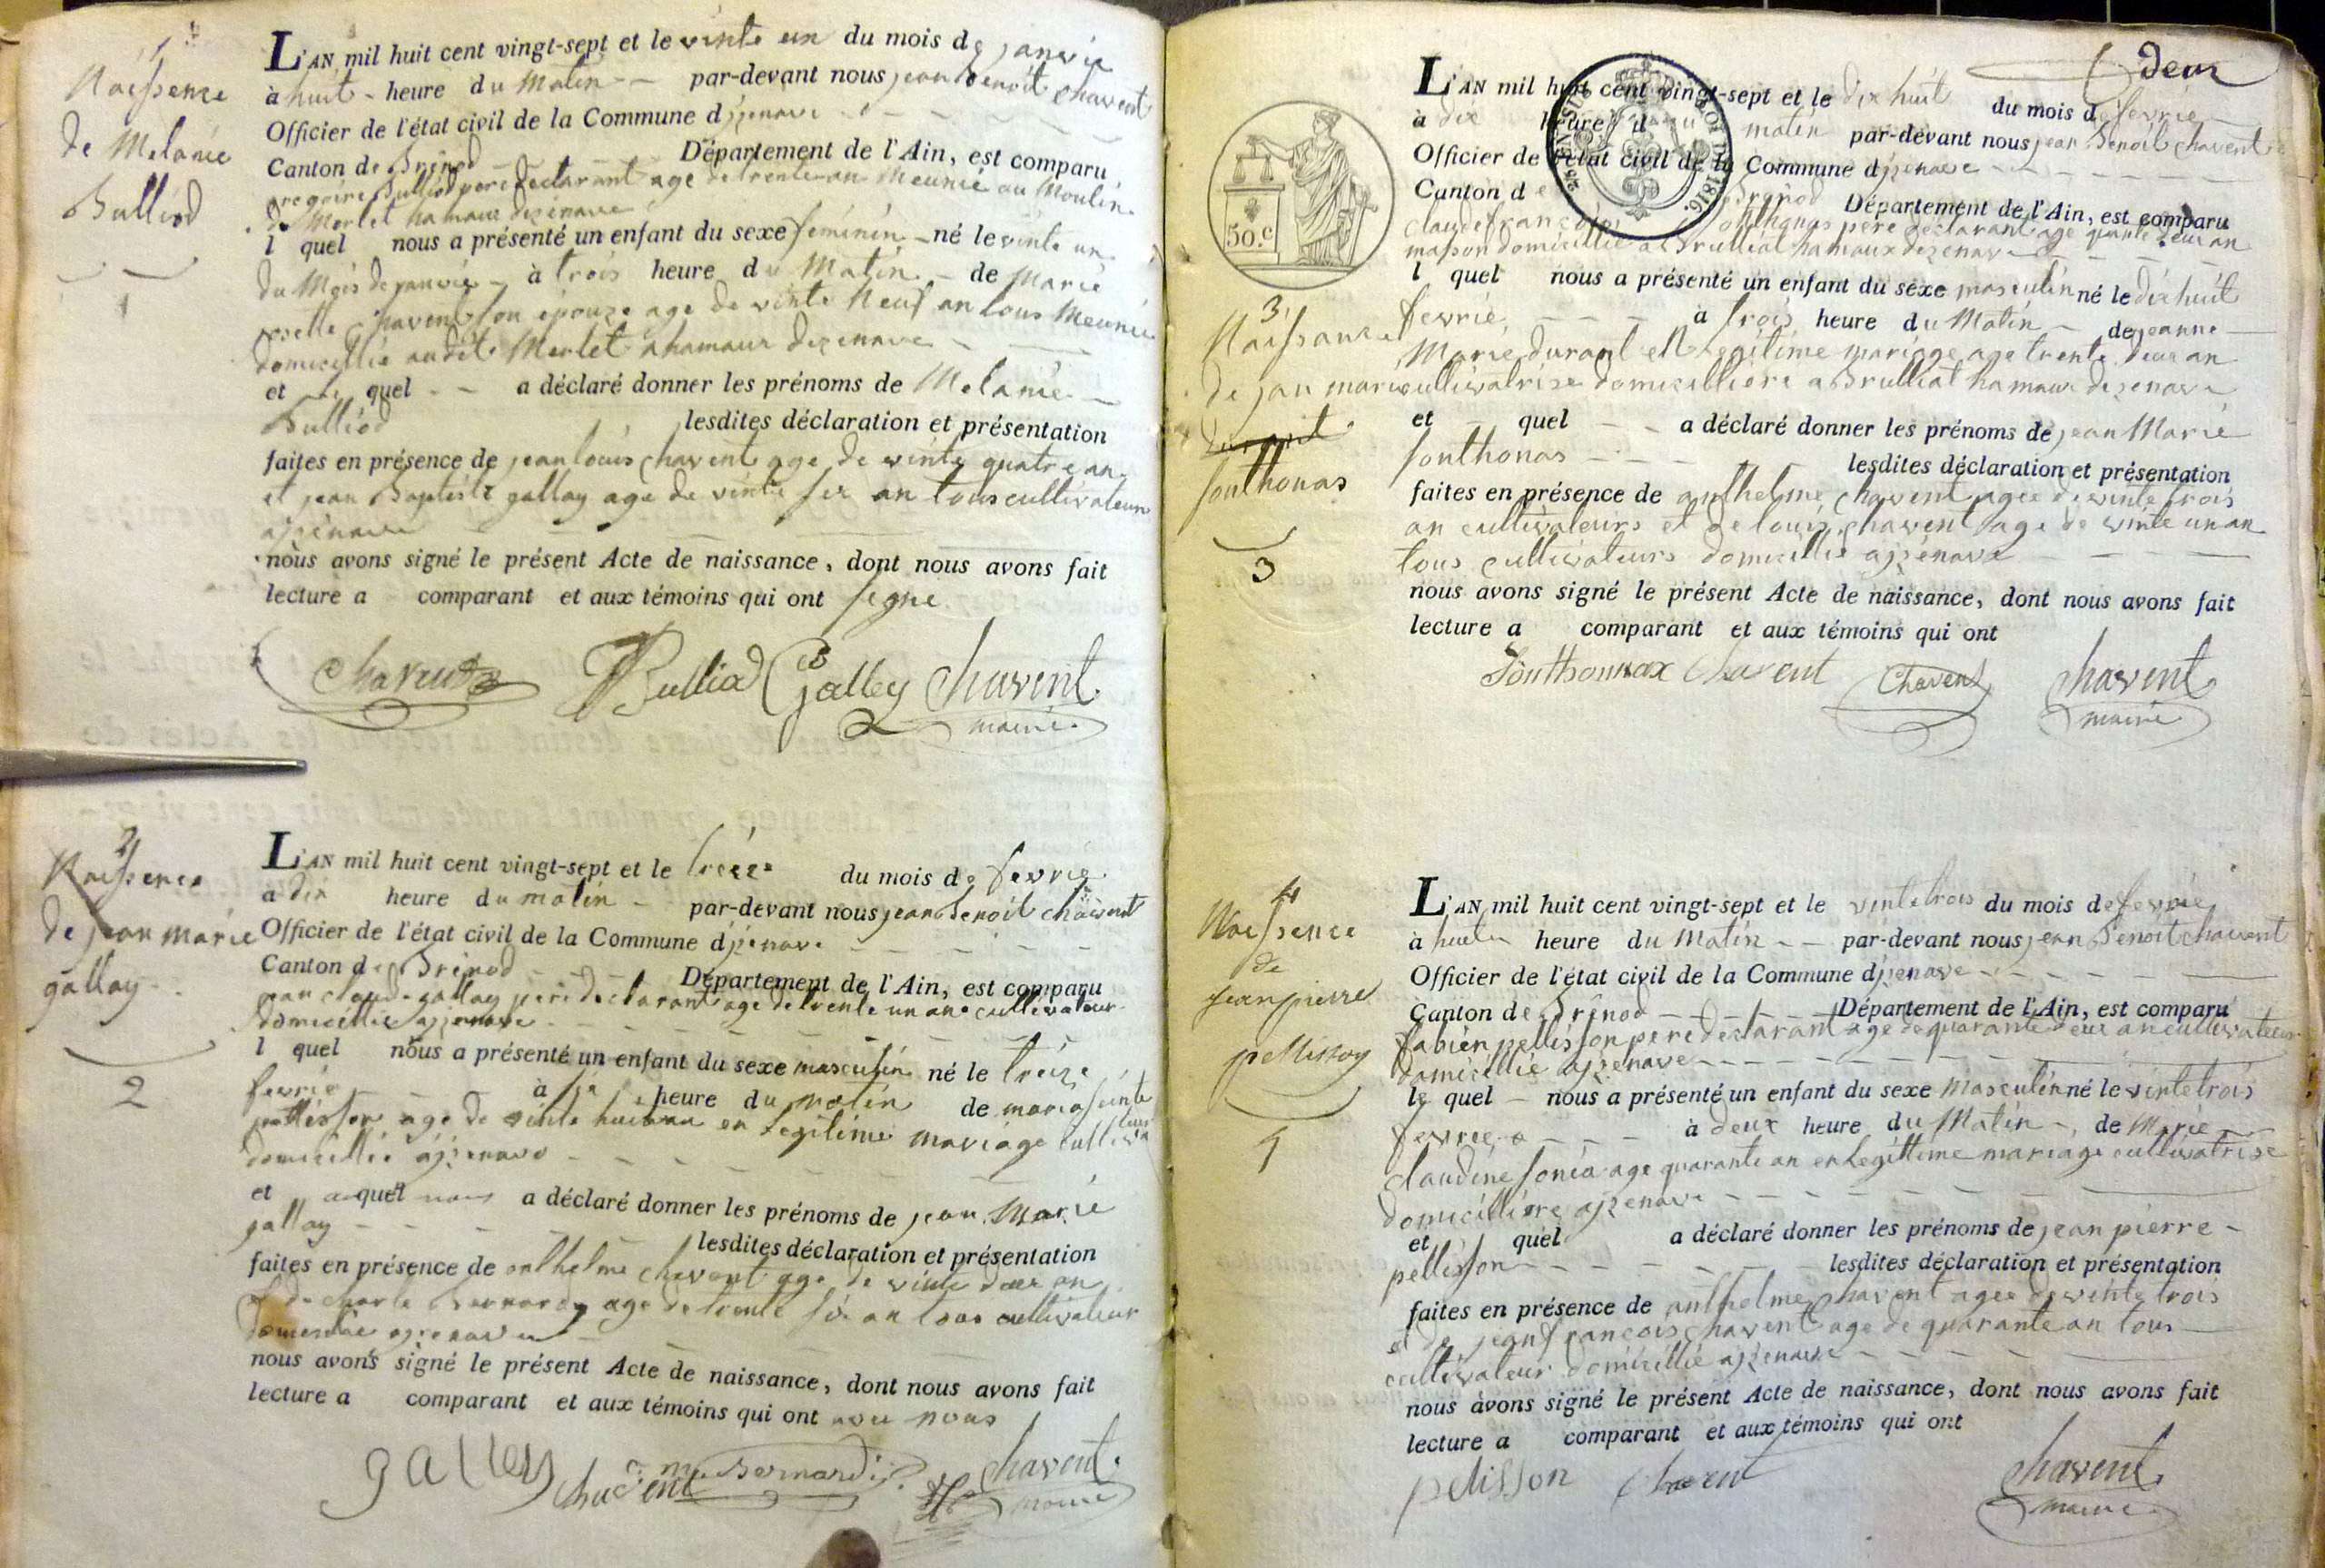 1
Naissence
de Melanie
Bulliod
1
L'AN mil huit cent vingt-sept et le vinte un du mois de janvie
à huit heure du Matin par-devant nous jean Benoit Chavent
Officier de l'état civil de la Commune dizenave
Canton de Brénod Département de l'Ain, est comparu
gregoire Bulliod pere declarant age de trente un Meunié au Moulin
de Merlet hamaux dezenave
l quel nous a présenté un enfant du sexe feminin né le vinte un
du Mois de janvie à trois heure du Matin de Marie
Chavent son épouze age de vinte Neuf an tous Meunié
domicellié audit Merlet ahamaux dezenave
et le quel a déclaré donner les prénoms de Melanie
Bulliod lesdites déclaration et présentation
faites en présence de jean louis Chavent age de vinte quatre an
et jean Baptiste gallay age de vinte six an tous cultivateurs
azenave
nous avons signé le présent Acte de naissance, dont nous avons fait
lecture a comparant et aux témoins qui ont signe
Chavent Bulliod Galley Chavent
maire
2
Naissence
de jean marie
gallay
2
L'AN mil huit cent vingt-sept et le treize du mois de fevrie
à dix heure du matin par-devant nous jean Benoit Chavent
Officier de l'état civil de la Commune dizenave
Canton de Brénod Département de l'Ain, est comparu
jean claude gallay pere declarant age de trente un an cultivateur
domicellie azenave
l quel nous a présenté un enfant du sexe masculin né le treize
fevrié à heure du matin de maria
pellisson age de vinte huit an en legitime mariage
domicellié azenave
et quel a déclaré donner les prénoms de jean Marie
gallay lesdites déclaration et présentation
faites en présence de anthelme chavent age de vinte deux an
et de charle Bernardy age de trente six an tous cultivateur
domicelié azenave
nous avons signé le présent Acte de naissance, dont nous avons fait
lecture a comparant et aux témoins qui ont avec nous
galley Chavent Bernardi Chavent
maire
deux
50.c
L'AN mil huit cent vingt-sept et le dix huit du mois de fevrie
à dix heure du matin par-devant nous jean Benoit Chavent
Officier de l'état civil de la Commune dizenave
Canton de Brénod Département de l'Ain, est comparu
claude françois sonthonas pere declarant age deux an
masson domicellié a Brulliat hamaux dezenave
l quel nous a présenté un enfant du sexe masculin né le dix huit
fevrié à trois heure du Matin de jeanne
Marie durant en legitime mariage age trente deux an
cultivatrise domicilliere a Brulliat hamaux dezenave
et quel a déclaré donner les prénoms de jean Marie
sonthonas lesdites déclaration et présentation
faites en présence de anthelme Chavent agee de vinte trois
an cultivateurs et de louis chavent age de vinte un an
tous cultivateurs domicellié azenave
nous avons signé le présent Acte de naissance, dont nous avons fait
lecture a comparant et aux témoins qui ont
Sonthonnax Chavent Chavent Chavent
maire
3
Naissance
de jan marie
sonthonas
3
4
Naissence
de
jean pierre
pellisson
4
L'AN mil huit cent vingt-sept et le vinte trois du mois de fevrié
à huit heure du Matin par-devant nous jean Benoit chavent
Officier de l'état civil de la Commune dizenave
Canton de Brénod Département de l'Ain, est comparu
fabien pellisson pere declarant age de quarante deux an cultivateur
domicellié azenave
le quel nous a présenté un enfant du sexe Masculin né le vinte trois
fevrié à deux heure du Matin de Marie
claudine sonia age quarante an en legittime mariage cultivatrise
domicilliere azenave
et quel a déclaré donner les prénoms de jean pierre
pellisson lesdites déclaration et présentation
faites en présence de anthelme chavent agee de vinte trois
et de jean françois chavent age de quarante an tous
cultivateur domicellié azenave
nous avons signé le présent Acte de naissance, dont nous avons fait
lecture a comparant et aux témoins qui ont
pelisson Chavent Chavent
maire